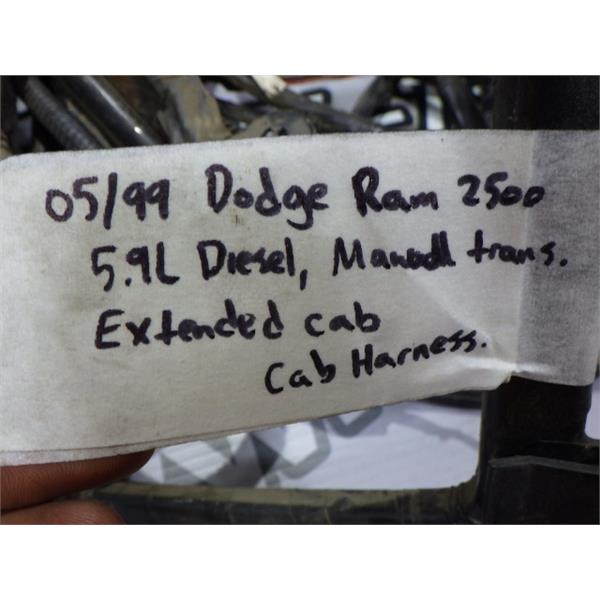 05/99 Dodge Ram 2500
5.9L Diesel, Manuall trans.
Extended cab
Cab Harness.